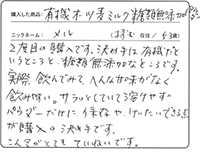 購入した商品: 有機ホッ茶ミルク糖類無添加
ニックネーム: メル (ほうむ 在住/53歳)
2度目の購入です。決め手は有機だと
いうところと、糖類無添加なところです。
実際飲んでみて、へんな甘味がなく
飲みやすい。サラッとしていて溶けやすい
パウダーだけに、保存や、けいたいできる点
が購入の決め手です。
こん包がとてもていねいです。